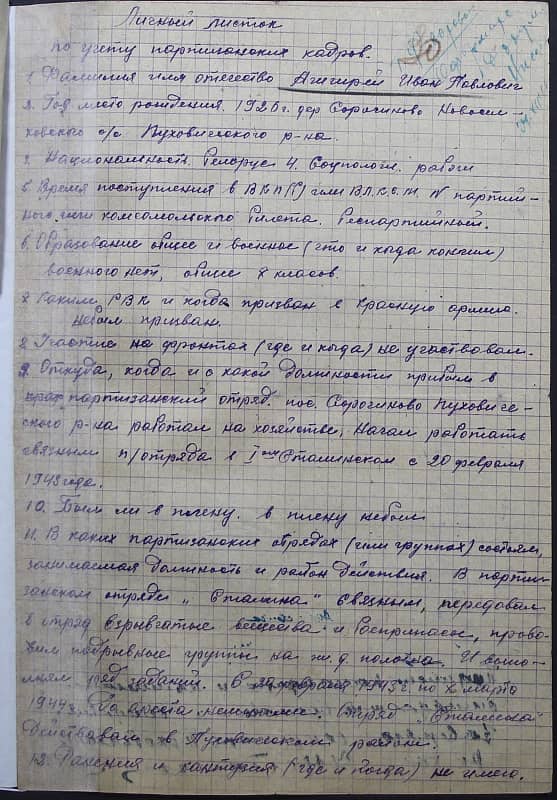 Личный листок
по учету партизанских кадров.
1. Фамилия имя отечество Агигирей Иван Павлович
2. Год место рождения. 1926 г. дер Сорочиново Новосел-
ковского с/с Пуховического р-на.
3. Национальность. Белорус 4. Соцпологи. рабочи
5. Время поступления в ВКП(б) или ВЛКСМ N партий-
ного или комсомольского билета. Беспартийный.
6. Образование общее и военное (что и когда кончил)
военного нет, общее 8 класов.
7. Каким РВК и когда призван в Красную армию.
небыл призван.
8. Участие на фронтах (где и когда) не участвовал.
9. Откуда, когда и с какой должности прибыл в
партизанский отряд. пос. Сорочиново Пуховиче-
ского р-на работал на хозяйстве, Начал работать
связным п/отряда в Iом Сталинском с 20 февраля
1943 года.
10. Был ли в плену. в плену небыл
11. В каких партизанских отрядах (или группах) состоял,
занимаемая должность и район действия. В парти-
занском отряде „Сталина" связным, передавал
в отряд взрывчатые вещества и боеприпасы, прово-
дил подрывные группы на ж.д. полотна. И выпо-
лнял ряд заданий. С 1943 г. по 8 марта
1944 г. отряд „Сталина"
Действовал в Пуховическом районе.
12. Ранения и контузия (где и когда) не имею.